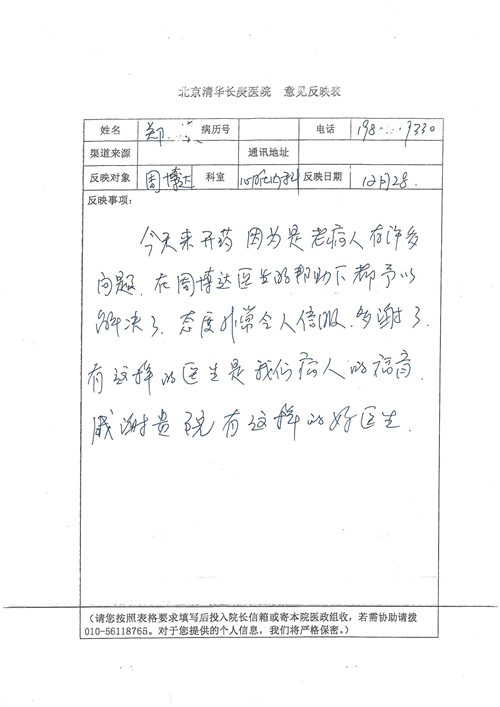 北京清华长庚医院 意见反映表
姓名 郑 病历号 电话 198 9330
渠道来源 通讯地址
反映对象 周博达 科室 心脏内科 反映日期 12月28.
反映事项：
今天来开药 因为是老病人有许多
问题. 在周博达医生的帮助下都予以
解决了. 态度非常令人信服. 多谢了.
有这样的医生是我们病人的福音.
感谢贵院有这样的好医生.
（请您按照表格要求填写后投入院长信箱或寄本院医政组收，若需协助请拨
010-56118765。对于您提供的个人信息，我们将严格保密。）